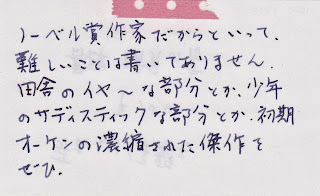 ノーベル賞作家だからといって、
難しいことは書いてありません。
田舎のイヤ〜な部分とか、少年
のサディスティックな部分とか、初期
オーケンの濃縮された傑作を
ぜひ。